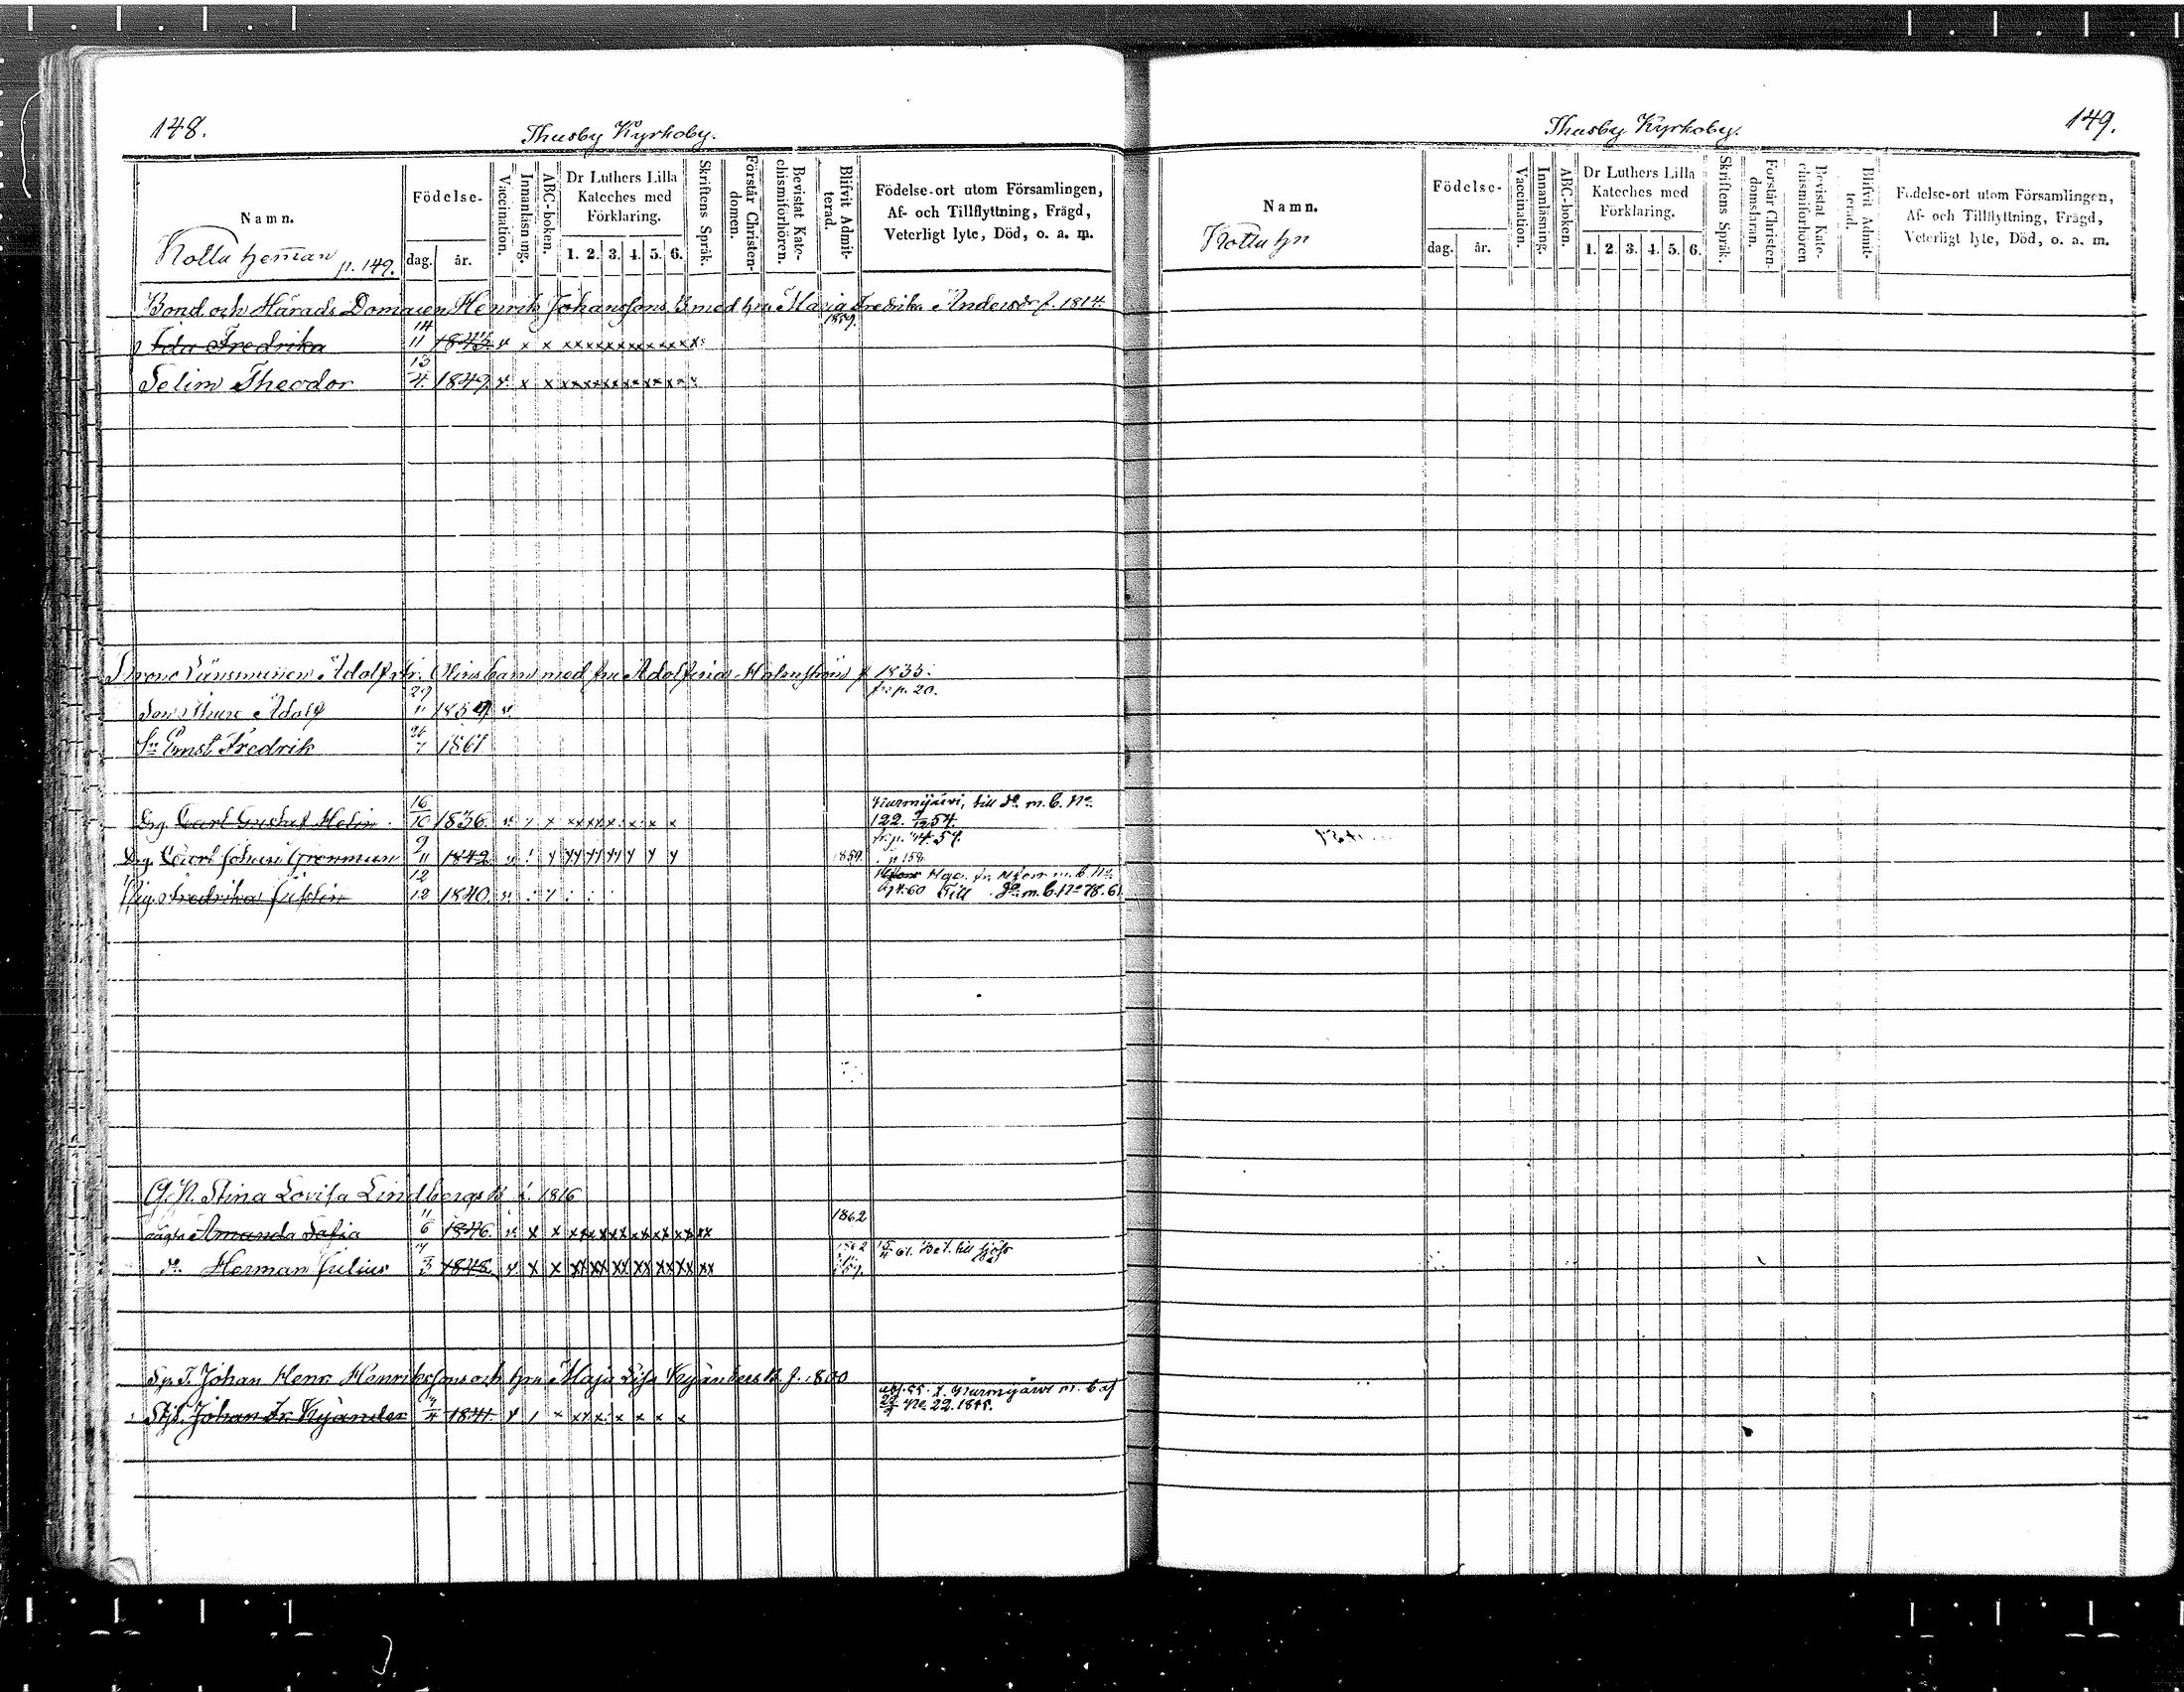 148.
Thusby Kyrkoby.
Namn.
Födelse-
dag. år.
Vaccination.
Innanläsning.
ABC-boken.
Dr Luthers Lilla Kateches med Förklaring.
1. 2. 3. 4. 5. 6.
Skriftens Språk.
Förstår Christendomen.
Bevistat Katechismiförhören.
Blifvit Admitterad.
Födelse-ort utom Församlingen,
Af- och Tillflyttning, Frägd,
Veterligt lyte, Död, o. a. m.
Kollu heman p. 149.
Bond. och Härads Domaren Henrik Johanssons B med hu Maria Fredrika Andersdr f. 1814.
Ida Fredrika 14/11 1843. v x x xx xx xx xx xx xx x 1859.
Selim Theodor 13/4. 1849. v. x x xx xx xx xx xx
Länsmannen Adolf barn med hu Adolfina Malmström f 1833.
fr. p. 20.
Son Thure Adolf 29 1859 v.
Sn Ernst Fredrik 1861
Drg. Carl Gustaf Melin 16/10 1836. Nurmijärvi, till do m. b. No
122. 54.
Drg. Carl Johan Grönman 9/11 1842 1859. p 158.
Pig. Fredrika Justin 12/12 1840. Till do m. b. No 78. 61
Stina Lovisa Lindbergs B f. 1816
Amanda Sofia 11/6 1846. v. x x xx xx xx xx xx xx xx 1862
do Herman Julius 7/3 1848. v x x xx xx xx xx xx xx xx 1862 61. Bet. till sjöfs
Johan Henr Henriksson och hu Maja Lisa Kyanders B. f. 1800
Johan Fr. Kyander 7/4 1841. Nurmijärvi m. b af
No 22. 1848.
149.
Thusby Kyrkoby.
Namn.
Födelse-
dag. år.
Vaccination.
Innanläsning.
ABC-boken.
Dr Luthers Lilla Kateches med Förklaring.
1. 2. 3. 4. 5. 6.
Skriftens Språk.
Förstår Christendomsläran.
Bevistat Katechismiförhören
Blifvit Admitterad.
Födelse-ort utom Församlingen,
Af- och Tillflyttning, Frägd,
Veterligt lyte, Död, o. a. m.
Kollu hn